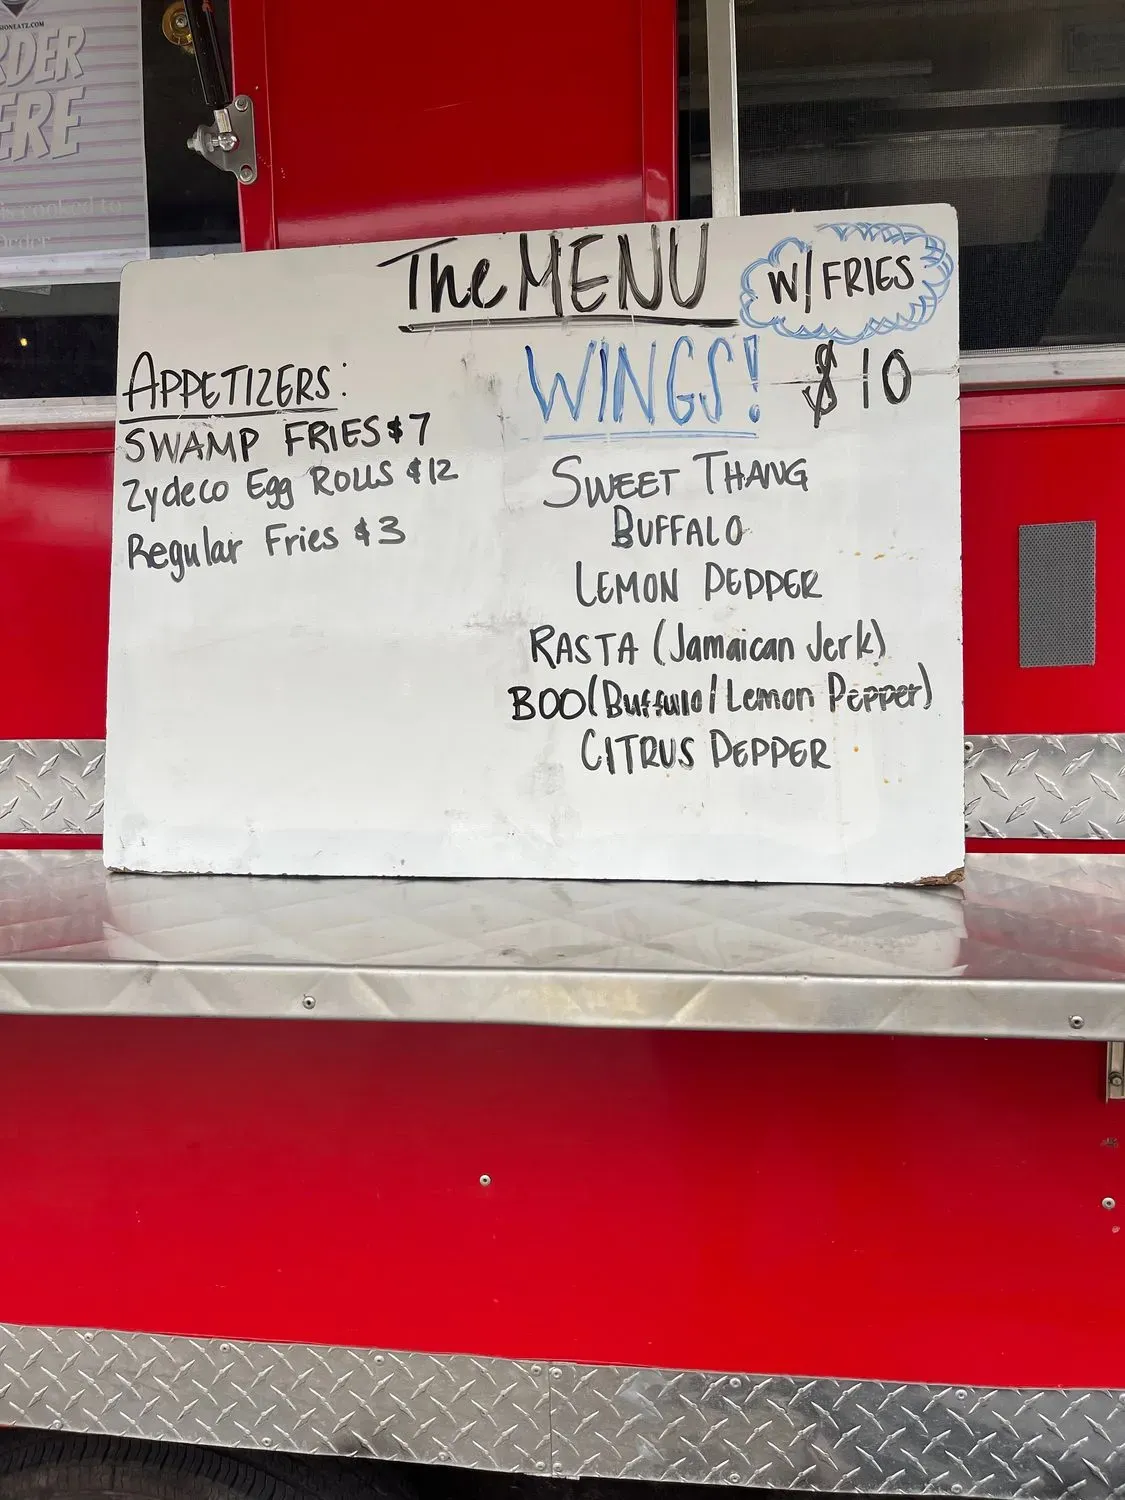 The MENU
W/ FRIES
APPETIZERS:
SWAMP FRIES $7
Zydeco Egg ROLLS $12
Regular Fries $3
WINGS! $10
SWEET THANG
BUFFALO
LEMON PEPPER
RASTA (Jamaican Jerk)
BOO (Buffulo/Lemon Pepper)
CITRUS PEPPER
is cooked to